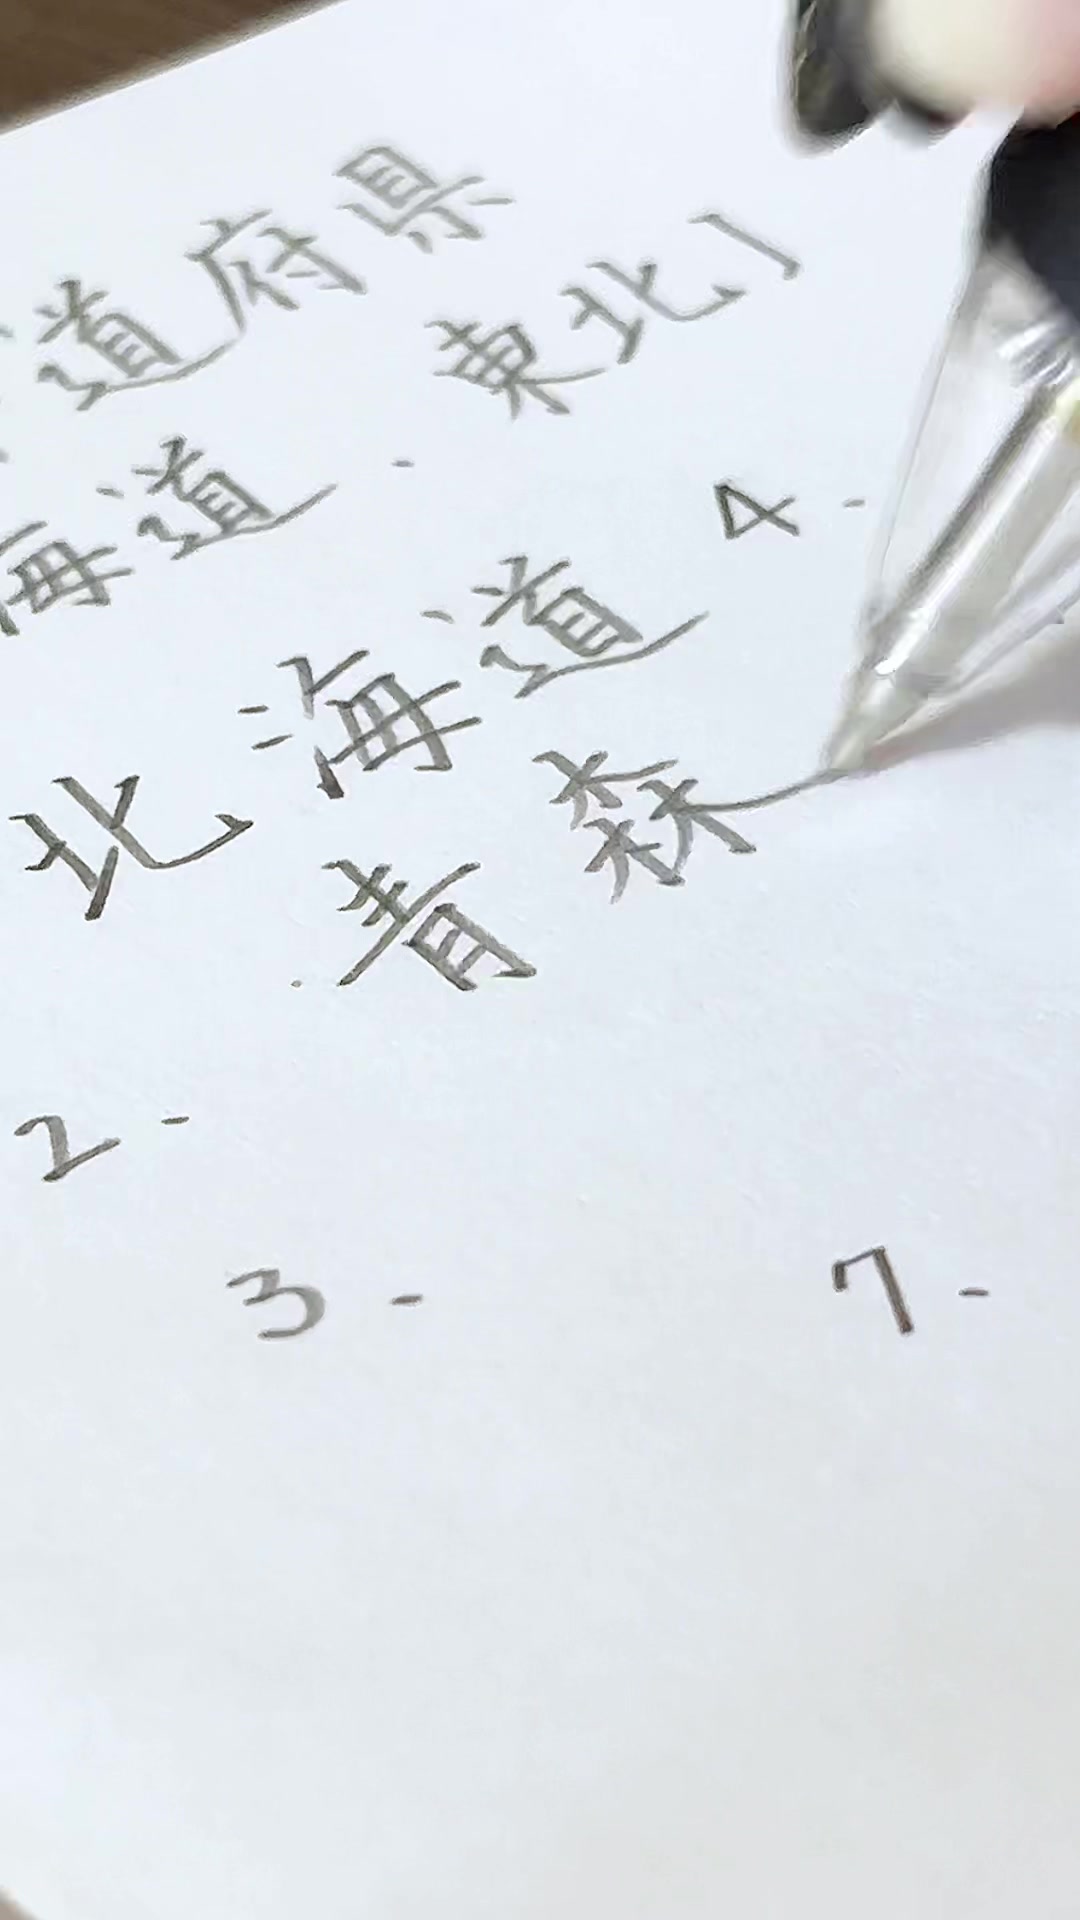 道府県
海道・東北)
北海道 4.
青森
2.
3. 7.